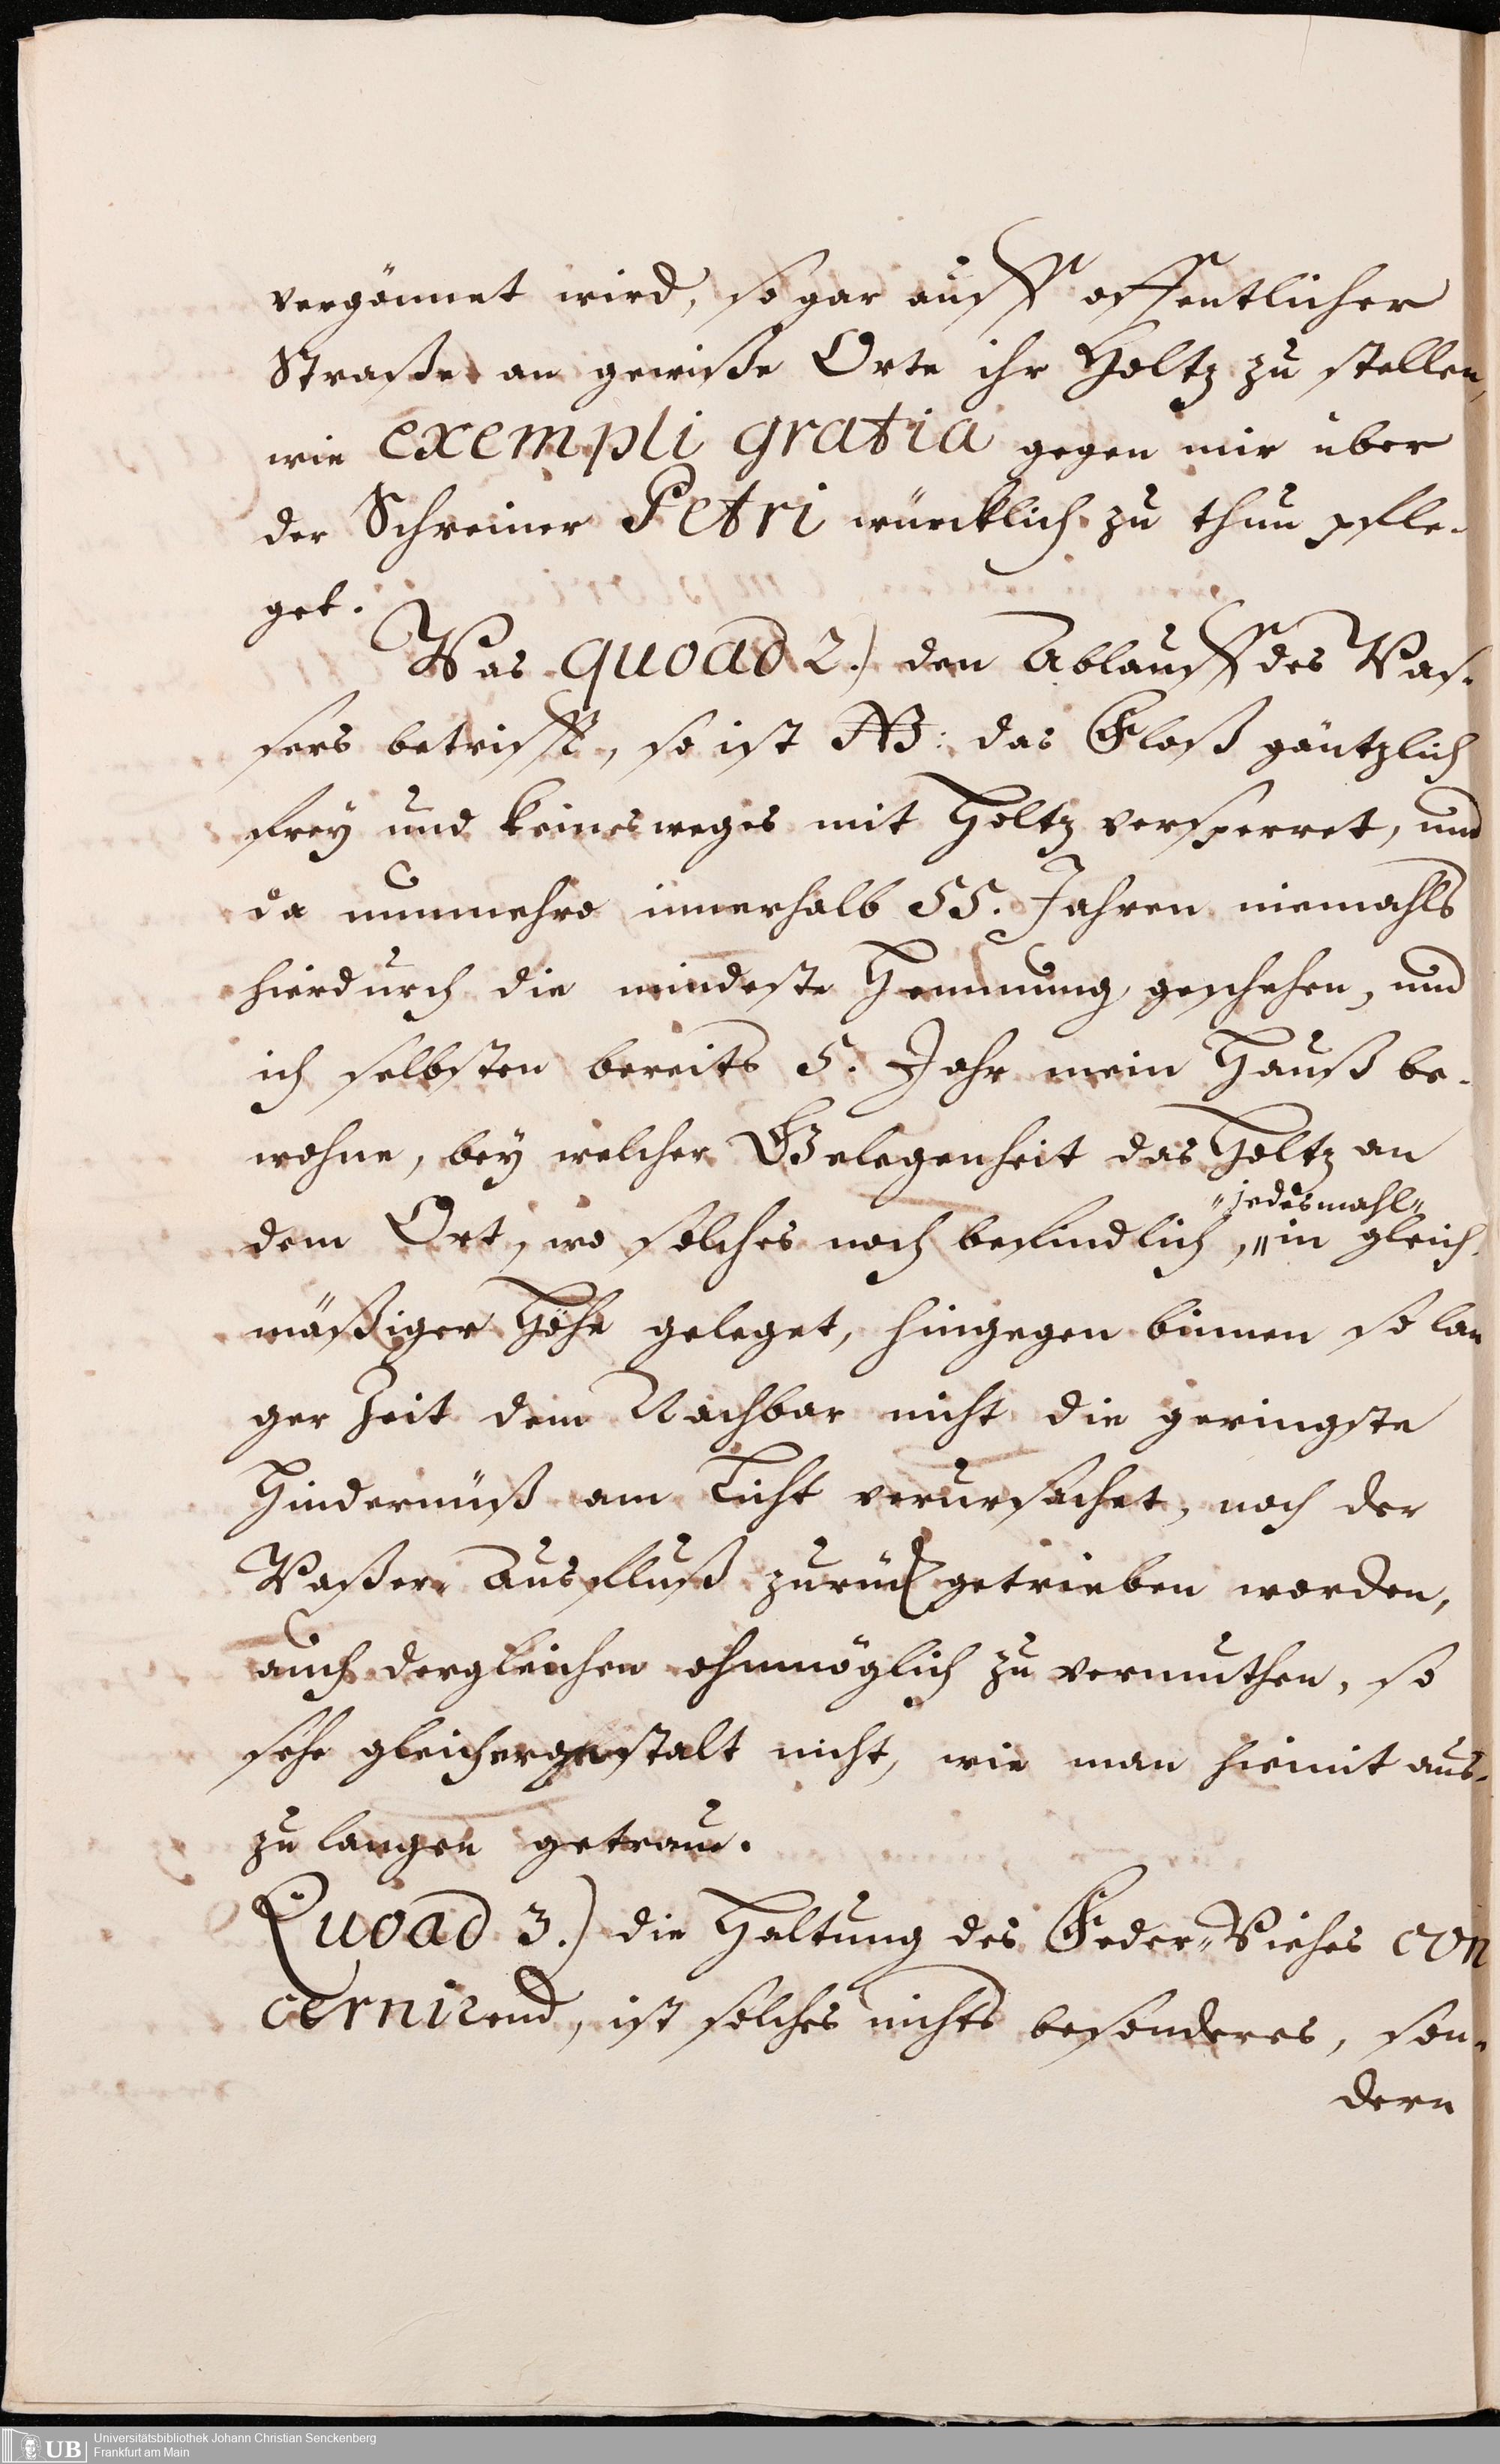 vergönnet wird, so gar auff offentlicher
Straße an gewiße Orte ihr Holtz zu stellen,
wie exempli gratia gegen mir über
der Schreiner Petri würcklich zu thun pfle-
get.
Was quoad 2.) den Ablauff des Was-
sers betrifft, so ist NB: das Floß gäntzlich
frey und keinesweges mit Holtz versperret, und
da nunmehro innerhalb 55. Jahren niemahls
hierdurch die mindeste Hemmung geschehen, und
ich selbsten bereits 5. Jahr mein Hauß be-
wohne, bey welcher Gelegenheit das Holtz an
"jedesmahl"
dem Ort, wo solches noch befindlich, "in gleich-
mäßiger Höhe geleget, hingegen binnen so lan
ger Zeit dem Nachbar nicht die geringste
Hindernüß am Licht verursachet, noch der
Waßer-Ausfluß zurück getrieben worden,
auch dergleichen ohnmöglich zu vermuthen, so
sehe gleichergestalt nicht, wie man hiemit aus-
zulangen getraue.
Quoad 3.) die Haltung des Feder-Viehes con
cernirend, ist solches nichts besonderes, son-
dern
UB
Universitätsbibliothek Johann Christian Senckenberg
Frankfurt am Main